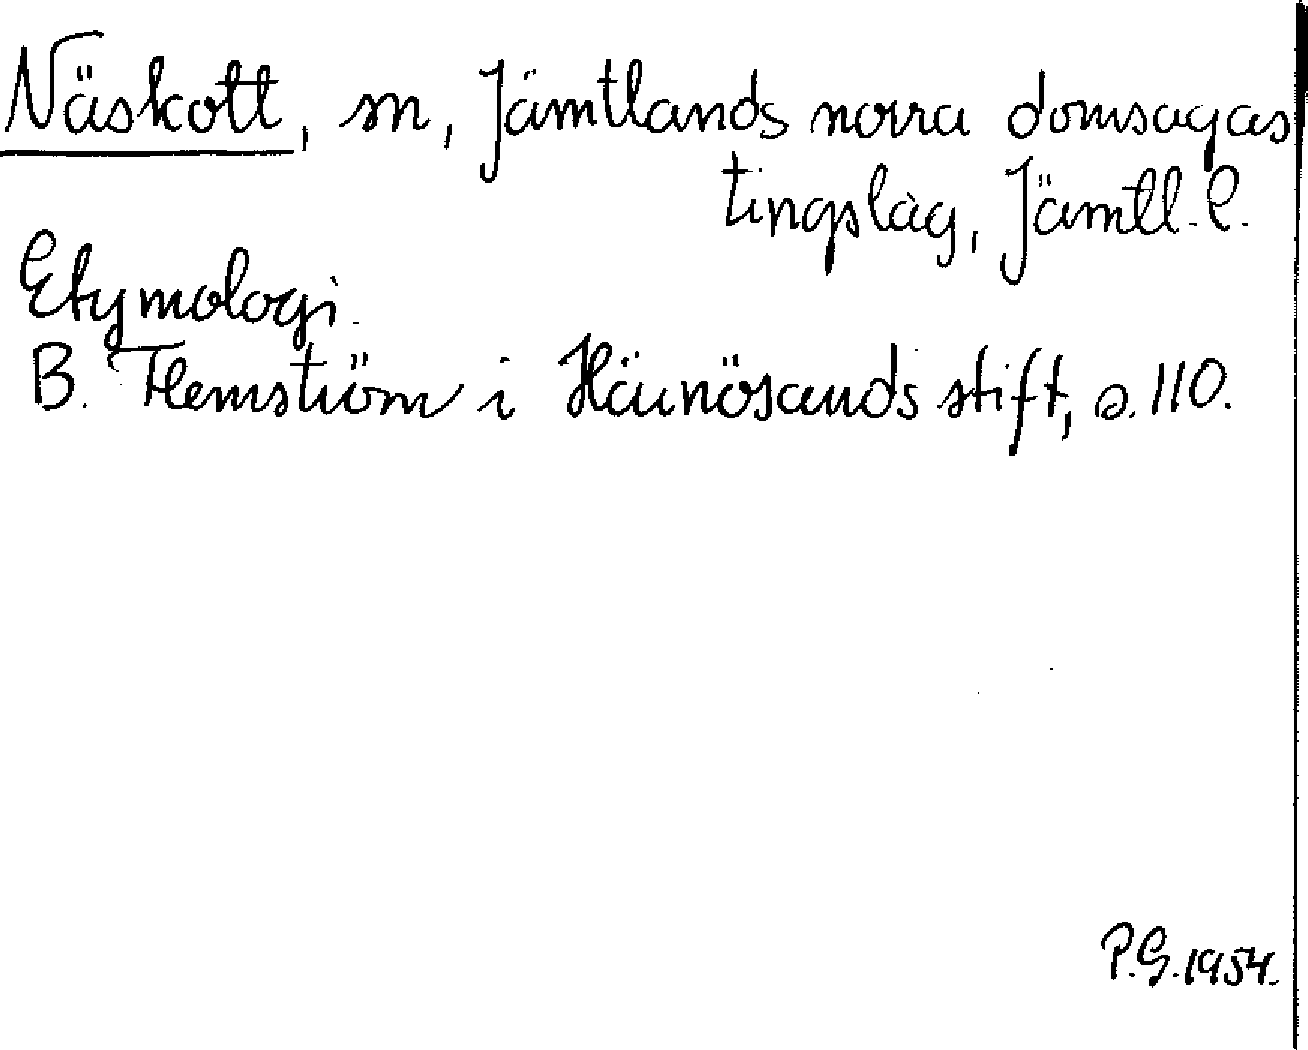 Näskott, sn, Jämtlands norra domsagas
tingslag, Jämtl. l.
Etymologi.
B. Flemström i Härnösands stift, s. 110.
P.G. 1954.